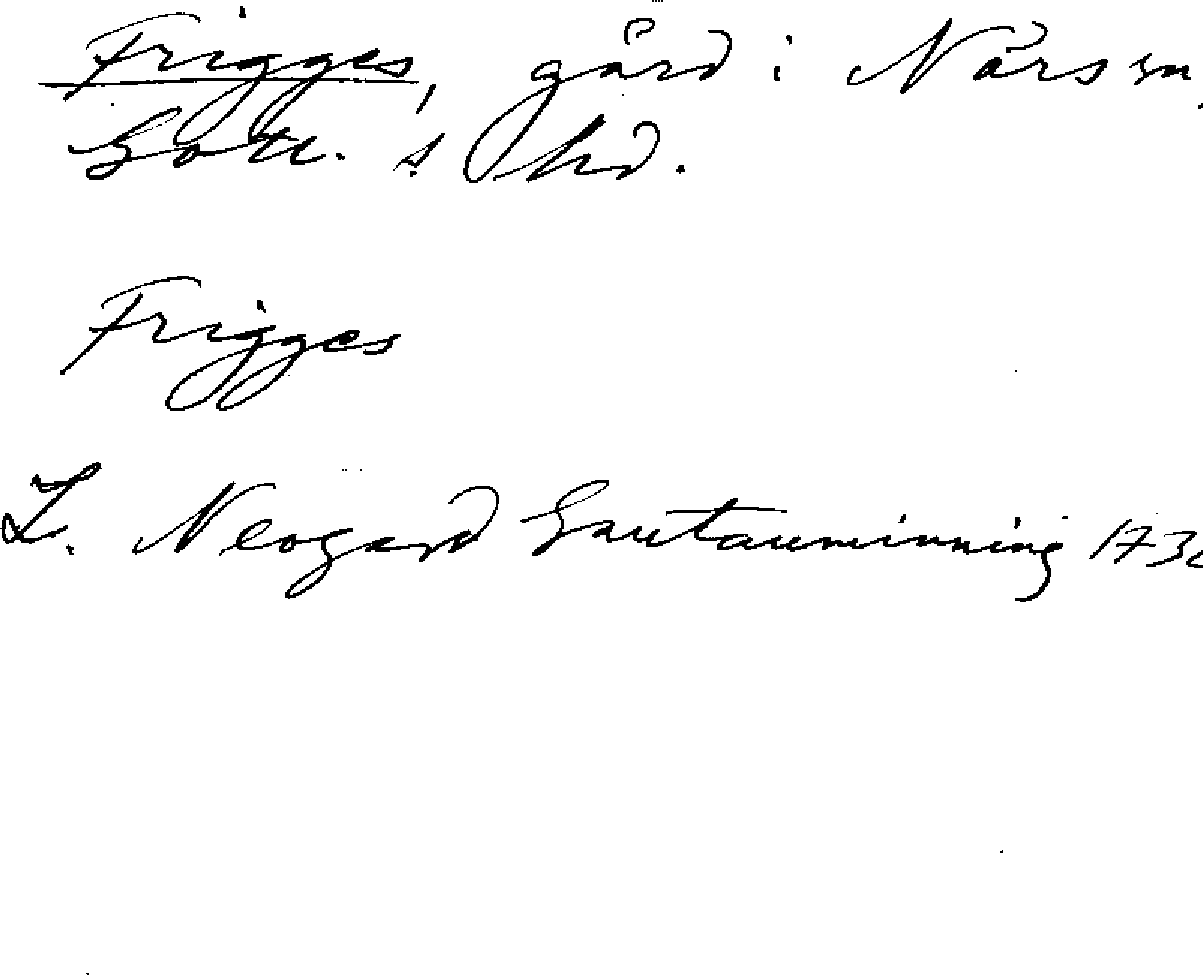 Frigges, gård i Närs sn,
Gotl. s. hd.
Frigges
L. Neogard Gautauminning 173